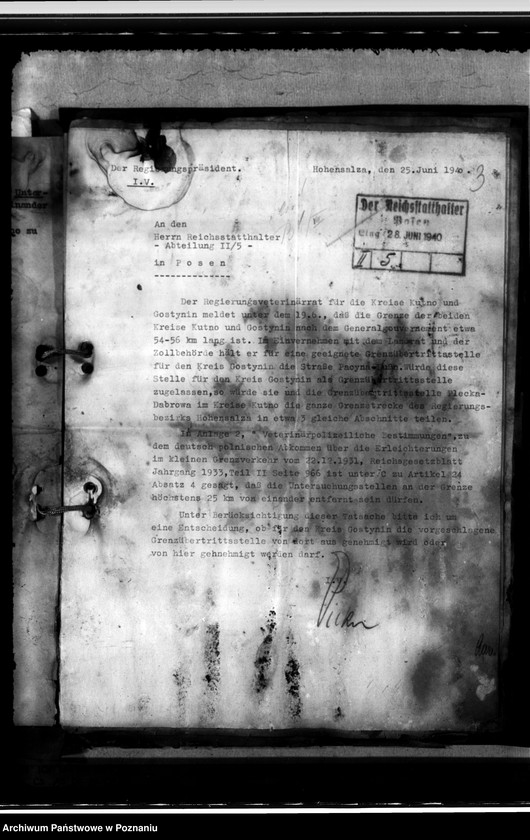 Der Regierungspräsident.
Hohensalza, den 25.Juni 1940.
I.V.
3
Der Reichsstatthalter
Posen
Eing. 28. JUNI 1940
II 5
An den
Herrn Reichsstatthalter
- Abteilung II/5 -
in P o s e n
Der Regierungsveterinärrat für die Kreise Kutno und
Gostynin meldet unter dem 19.6., daß die Grenze der beiden
Kreise Kutno und Gostynin nach dem Generalgouvernement etwa
54-56 km lang ist. Im Einvernehmen mit dem Landrat und der
Zollbehörde hält er für eine geeignete Grenzübertrittsstelle
für den Kreis Gostynin die Straße würde diese
Stelle für den Kreis Gostynin als Grenzübertrittsstelle
zugelassen,so würde sie und die Grenzübertrittsstelle Pleckn-
Dabrowa im Kreise Kutno die ganze Grenzstrecke des Regierungs-
bezirks Hohensalza in etwa 3 gleiche Abschnitte teilen.
In Anlage 2, "Veterinärpolizeiliche Bestimmungen",zu
dem deutsch polnischen Abkommen über die Erleichterungen
im kleinen Grenzverkehr vom 22.12.1931, Reichsgesetzblatt
Jahrgang 1933,Teil II Seite 966 ist unter C zu Artikel 24
Absatz 4 gesagt, daß die Untersuchungsstellen an der Grenze
höchstens 25 km von einander entfernt sein dürfen.
Unter Berücksichtigung dieser Tatsache bitte ich um
eine Entscheidung, ob für den Kreis Gostynin die vorgeschlagene
Grenzübertrittsstelle von dort aus genehmigt wird oder
von hier gehnehmigt werden darf.
I.V.
Archiwum Państwowe w Poznaniu